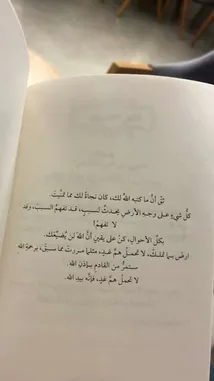 ثق أنَّ ما كتبه اللهُ لك، كان نجاةً لك مما تمنَّيت.
كلُّ شيءٍ على وجهِ الأرضِ يحدثُ لسببٍ، قد تفهمُ السببَ، وقد
لا تفهمُ!
بكلِّ الأحوالِ، كنْ على يقينٍ أنَّ اللهَ لن يُضيِّعَك.
ارضَ بما تملك، لا تحملْ همَّ غدٍ، مثلها مررتَ مما سبقَ، برحمةِ الله
ستمرُّ من القادمِ بإذنِ الله.
لا تحملْ همَّ غدٍ، فإنَّه بيدِ الله.